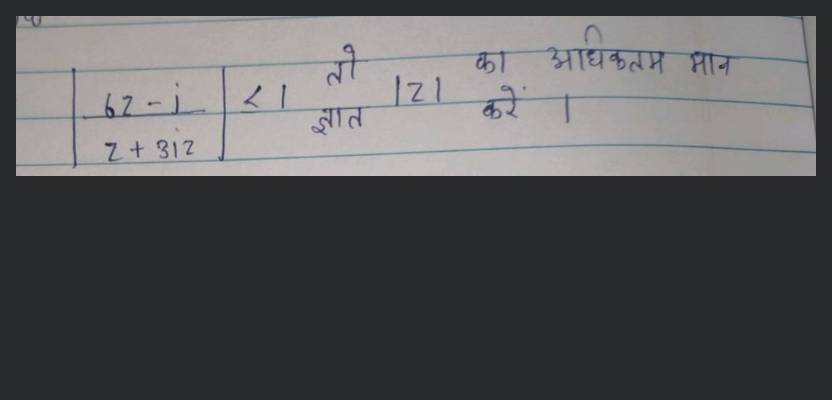 | 6z - i / z + 3iz | ≤ 1 तो |z| का अधिकतम मान
ज्ञात करें ।